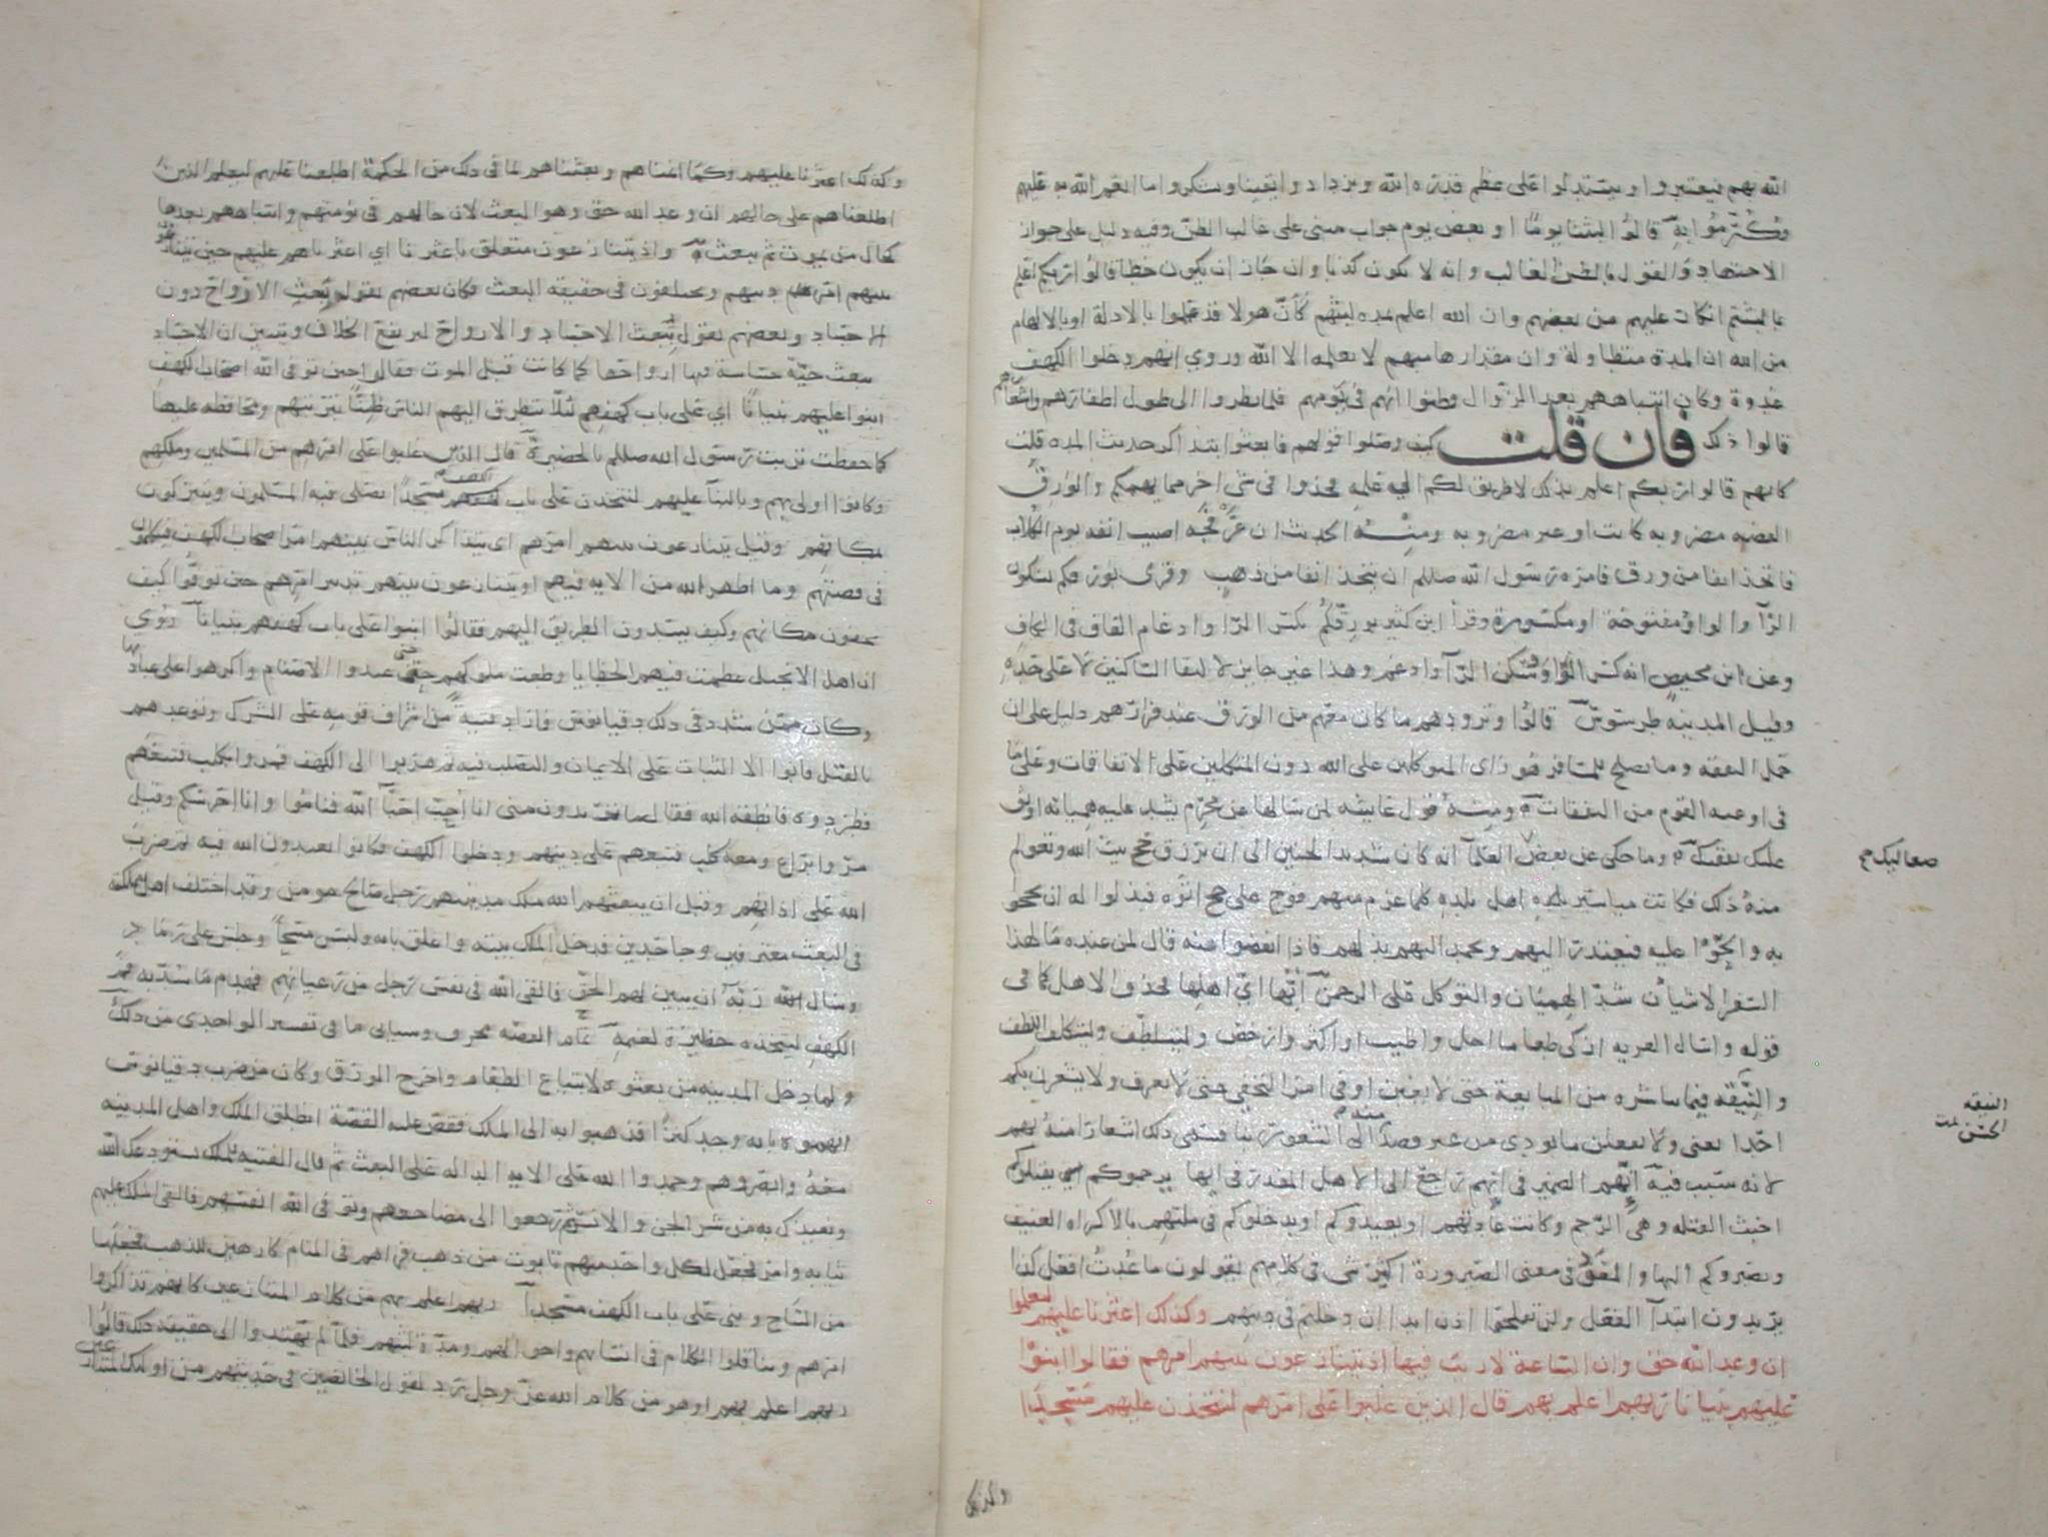 الله بهم فيعتبروا ويستدلوا على عظم قدرة الله ويزداد وايقينا ويشكروا ما انعم الله به عليهم
وكُرِّمُوا به قالوا لبثنا يومًا او بعض يوم جواب مبنى على غالب الظن وفيه دليل على جواز
الاجتهاد والقول بالظن الغالب وانه لا يكون كذبا وان جاز ان يكون خطا قالوا ربكم اعلم
بما لبثتم انكار عليهم من بعضهم وان الله اعلم بمدة لبثهم كأنّ هولا قد علموا بالادلة او بالالهام
من الله ان المدة متطاولة وان مقدارها مبهم لا يعلمه الا الله وروي انهم دخلوا الكهف
غدوة وكان انتباههم بعد الزوال وظنوا انهم في يومهم فلما نظروا الى طول اظفارهم واشعارهم
قالوا ذلك فان قلت كيف وصلوا قولهم فابعثوا بتذاكر حديث المده قلت
كانهم قالوا ربكم اعلم بذلك لا طريق لكم الى علمه فخذوا فى شى اخر مما يهمكم والورق
الفضه مضروبه كانت او غير مضروبه ومنه الحديث ان عرفجه اصيب انفه يوم الكلاب
فاتخذ انفا من ورق فامره رسول الله صللم ان يتخذ انفا من ذهب وقرى بورقكم بسكون
الرآ والواو مفتوحة او مكسورة وقرأ ابن كثير بورِقّكُم بكسر الرا وادغام القاف فى الكاف
وعن ابن محيصن انه كسر الواو وسكن الرآ وادغم وهذا غير جايز لالتقا الساكنين لا على حدّه
وقيل المدينة طرسوس قالوا وتزودهم ما كان معهم من الورق عند فرارهم دليل على ان
حمل النفقه وما يصلح للمسافر هو راى المتوكلين على الله دون المتكلين على الاتفاقات وعلى ما
فى اوعيه القوم من النفقات ومنه قول عايشه لمن سالها عن محرم يشد عليه هميانه اوثق
عليك نفقتك وما حكى عن بعض العلمآ انه كان شديد الحنين الى ان يرزق حج بيت الله وتعولم
منه ذلك فكانت مياسير بلده اهل بلده كلما عزم منهم فوج على حج اتوه فبذلوا له ان يحجوا
به والحّوا عليه فيعتذر اليهم ويحمد اليهم بذلهم فاذا انفضوا عنه قال لمن عنده ما لهذا
السفر الا شيأن شدّ الهميان والتوكل على الرحمن أيّها اىّ اهلها فحذف الاهل كما فى
قوله واسال القريه ازكى طعاما احل واطيب او اكثر وارخص وليتلطّف وليتكلف اللطف
والنيّقه فيما يباشره من المبايعة حتى لا يغبن او فى امر التخفى حتى لا يعرف ولا يشعرن بكم
احدا يعنى ولا يفعلن ما يودى من غير قصد منه الى الشعور بنا فسمى ذلك اشعارا منه بهم
لانه سبب فيه انّهم الضمير فى انهم راجع الى الاهل المقدر فى ايها يرجموكم يقتلوكم
اخبث القتله وهى الرجم وكانت عادتهم او يعيدوكم او يدخلوكم فى ملتهم بالاكراه العنيف
ويصيروكم اليها والعَوْد فى معنى الصيرورة اكثر شى فى كلامهم يقولون ما عُدتُ افعل كذا
يريدون ابتدآ الفعل ولن تفلحوا اذن ابدا ان دخلتم فى دينهم وكذلك اعثرنا عليهم ليعلموا
ان وعد الله حق وان الساعة لا ريب فيها اذ يتنازعون بينهم امرهم فقالوا ابنوا
عليهم بنيانا ربهم اعلم بهم قال الذين غلبوا على امرهم لنتخذن عليهم مسجدًا
صعاليك
النيقه
الحسن
وكذلك
وكذلك اعثرنا عليهم وكما انمناهم وبعثناهم لما فى ذلك من الحكمة اطلعنا عليهم ليعلم الذين
اطلعناهم على حالهم ان وعد الله حق وهو البعث لان حالهم فى نومتهم وانتباههم بعدها
كحال من يموت ثم يبعث واذ يتنازعون متعلق باعثرنا اي اعثرناهم عليهم حين يتنازعون
بينهم امر دينهم ويختلفون فى حقيقة البعث فكان بعضهم يقول تبعث الارواح دون
الاجساد وبعضهم يقول تبعث الاجساد والارواح ليرتفع الخلاف ويتبين ان الاجساد
تبعث حيّة حساسة فيها ارواحها كما كانت قبل الموت فقالوا حين توفى الله اصحاب الكهف
ابنوا عليهم بنيانًا اي على باب كهفهم لئلّا يتطرق اليهم الناس ظنًّا بتربتهم ومحافظة عليها
كما حفظت تربت رسول الله صللم بالحضيرة قال الذين غلبوا على امرهم من المسلمين وملكهم
وكانوا اولى بهم وبالبنآ عليهم لنتخذن على باب الكهف مسجدًا يصلى فيه المسلمون ويتبركون
بمكانهم وقيل يتنازعون بينهم امرهم اى يتذاكر الناس بينهم امر اصحاب الكهف ويتكلمون
فى قصتهم وما اظهر الله من الايه فيهم او يتنازعون بينهم تدبير امرهم حين توفوا كيف
يخفون مكانهم وكيف يسدون الطريق اليهم فقالوا ابنوا على باب كهفهم بنيانا رُوي
ان اهل الانجيل عظمت فيهم الخطايا وطغت ملوكهم حتى عبدوا الاصنام واكرهوا على عبادتها
وكان ممن شدد فى ذلك دقيانوس فاراد فتيةً من اشراف قومه على الشرك وتوعدهم
بالقتل فابوا الا الثبات على الايمان والتصلب فيه ثم هربوا الى الكهف فمروا بكلب فتبعهم
فطردوه فانطقه الله فقال ما تريدون منى انا أحِبّ احبّآ الله فناموا وانا احرسكم وقيل
مرّوا براع ومعه كلب فتبعهم على دينهم ودخلوا الكهف فكانوا يعبدون الله فيه ثم ضرب
الله على اذانهم وقبل ان يبعثهم الله ملك مدينتهم رجل صالح مومن وقد اختلف اهل مملكته
فى البعث معترفين وجاحدين فدخل الملك بيته واغلق بابه ولبس مسحًا وجلس على رماد
وسال الله ربّه ان يبين لهم الحق فالقى الله فى نفس رجل من رعيانهم فهدم ما سدّ به فم
الكهف ليتخذه حظيرة لغنمه
ولما دخل المدينه من بعثوه لابتياع الطعام واخرج الورق وكان من ضرب دقيانوس
اتهموه بانه وجد كنزًا فذهبوا به الى الملك فقص عليه القصة انطلق الملك واهل المدينه
معهُ وابصروهم وحمدوا الله على الايه الداله على البعث ثم قال الفتيه للملك نستودعك الله
ونعيذك به من شر الجن والانس ثم رجعوا الى مضاجعهم وتوفى الله انفسهم فالقى الملك عليهم
ثيابه وامر فجعل لكل واحد منهم تابوت من ذهب فراهم فى المنام كارهين للذهب فجعلها
من الساج وبنى على باب الكهف مسجدآ ربهم اعلم بهم من كلام المتنازعين كانهم تذاكروا
امرهم وتناقلوا الكلام فى انسابهم واحوالهم ومدّة لبثهم فلمآ لم يهتدوا الى حقيقة ذلك قالوا
ربهم اعلم بهم او هو من كلام الله عز وجل رد لقول الخائضين فى حديثهم من اولئك المتنازعين